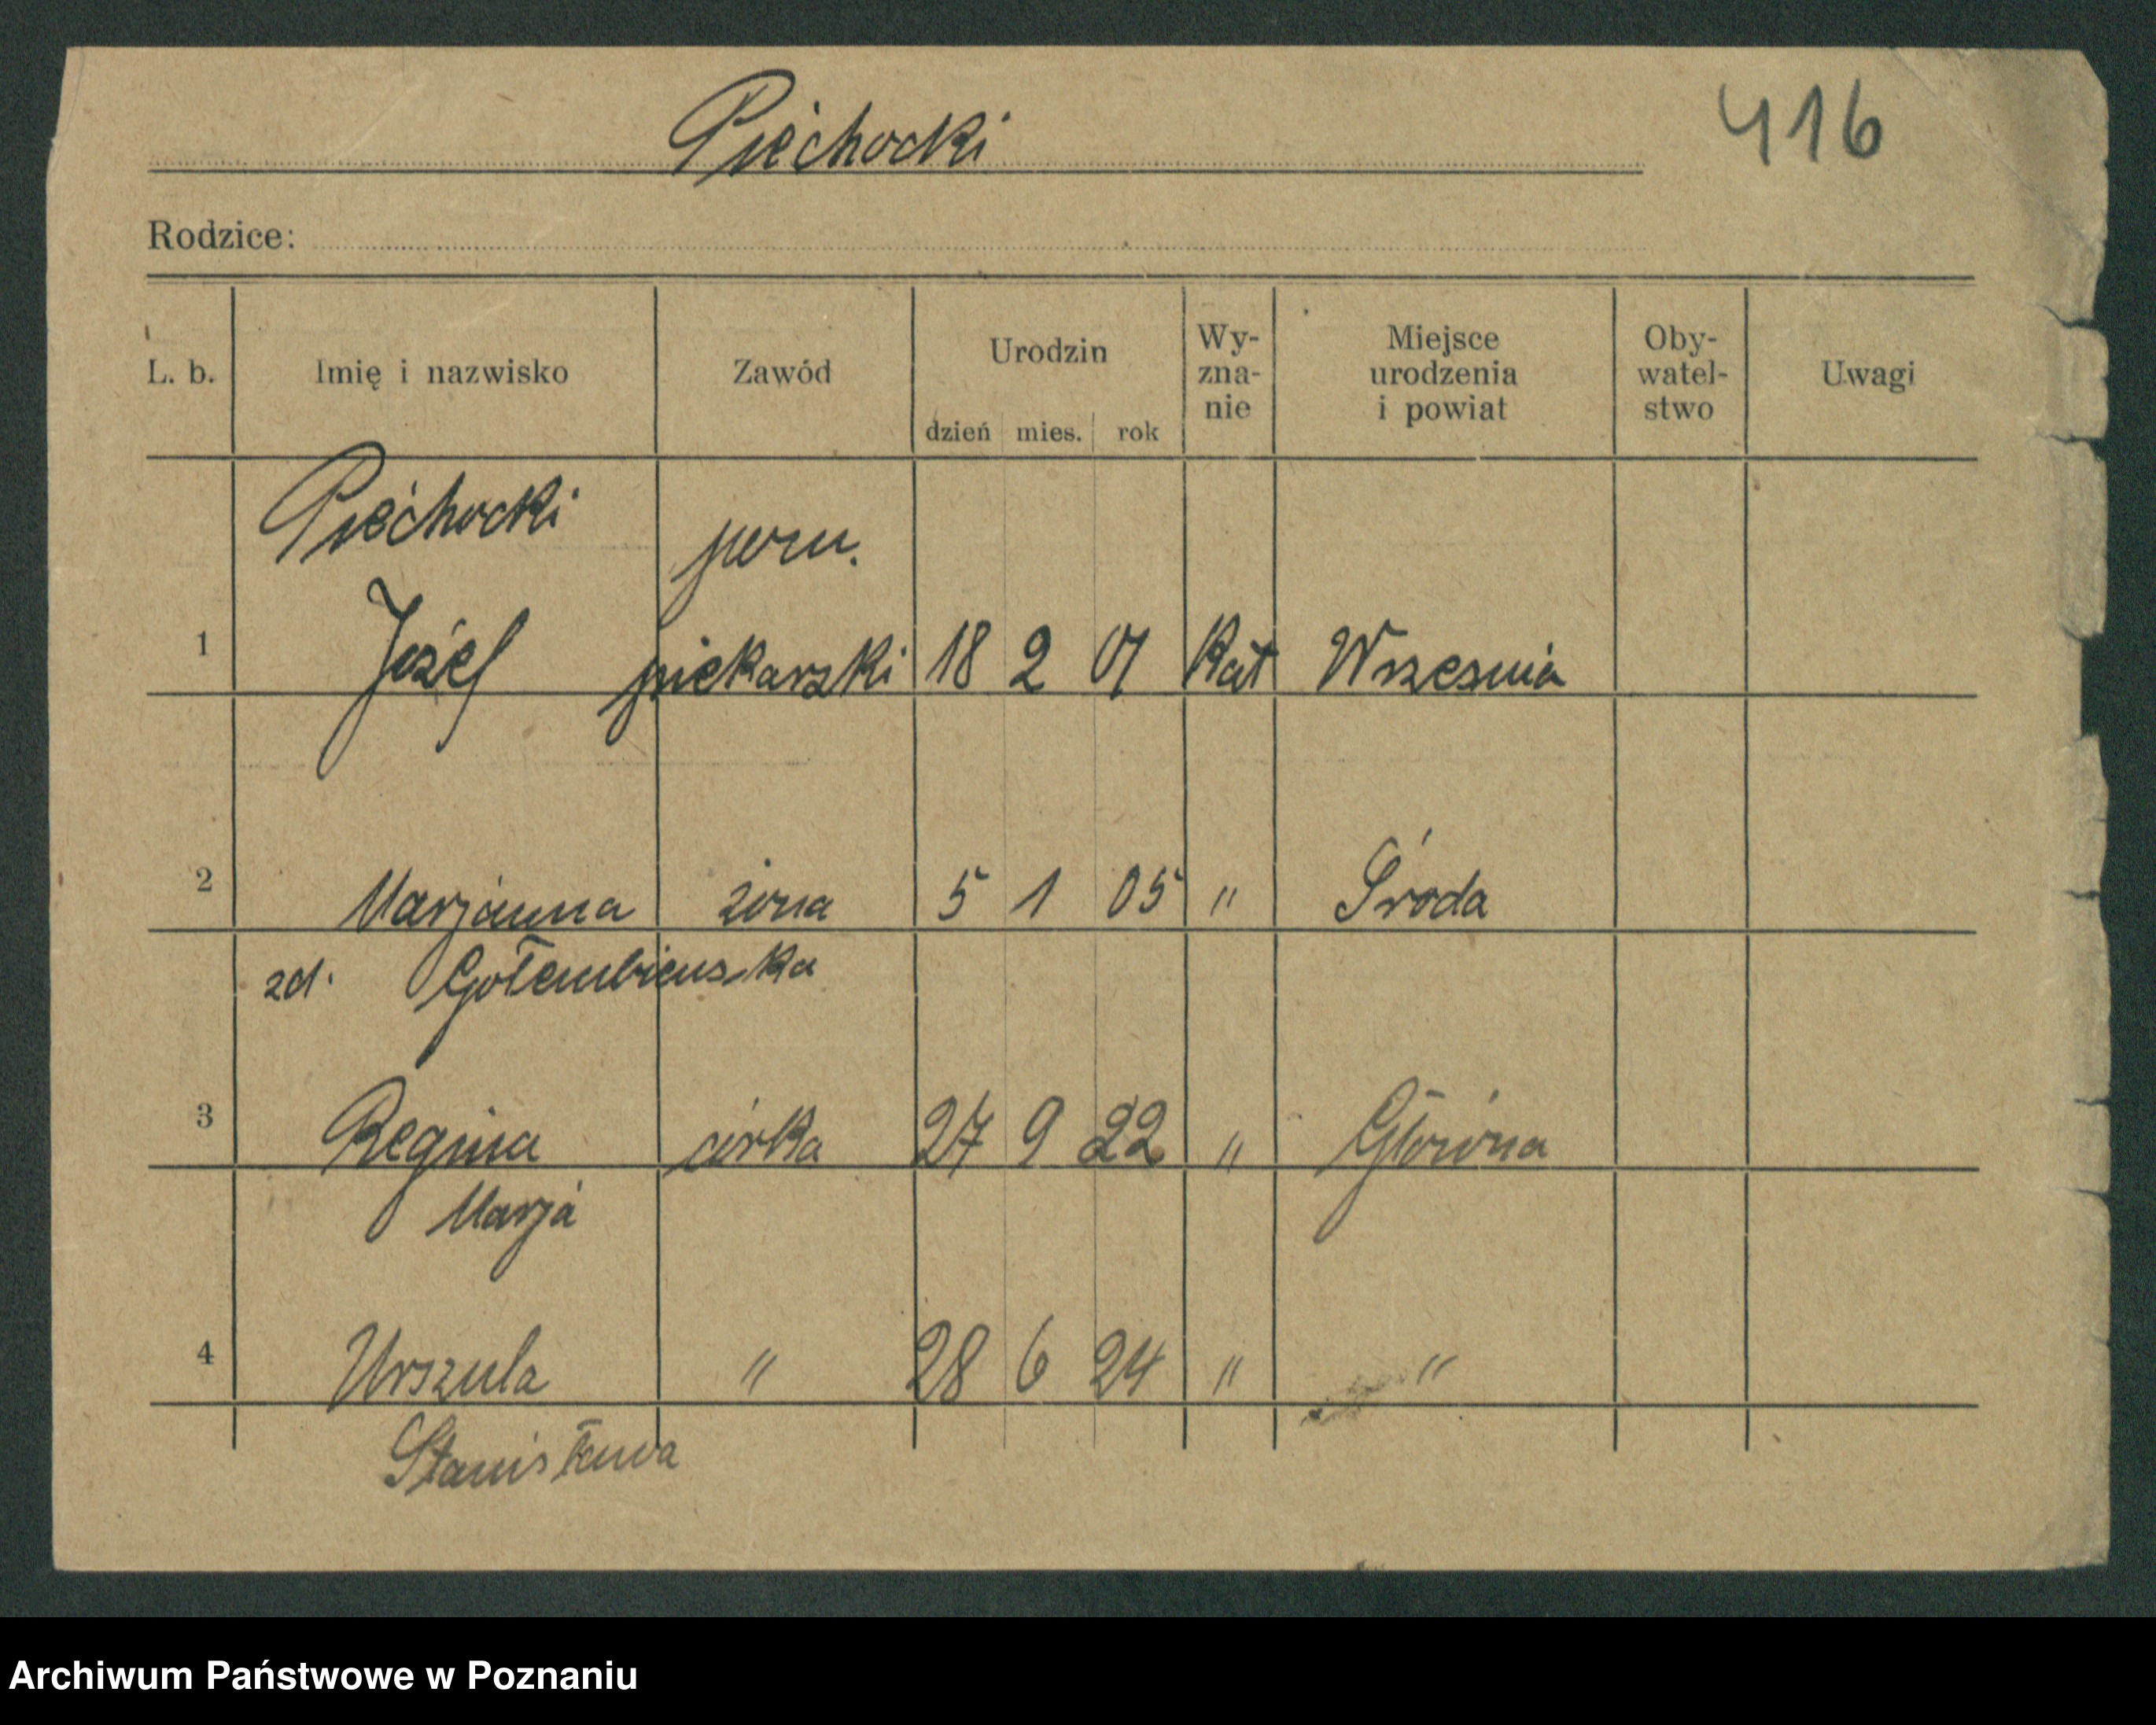 Piechocki
416
Rodzice:
L. b. Imię i nazwisko Zawód Urodzin dzień mies. rok Wy-zna-nie Miejsce urodzenia i powiat Oby-watel-stwo Uwagi
Piechocki pom.
1 Józef piekarski 18 2 01 Kat Wrzesnia
2 Marjanna żona 5 1 05 " Środa
zd. Gołembiewska
3 Regina córka 27 9 22 " Główna
Marja
4 Urszula " 28 6 24 " "
Stanisława
Archiwum Państwowe w Poznaniu